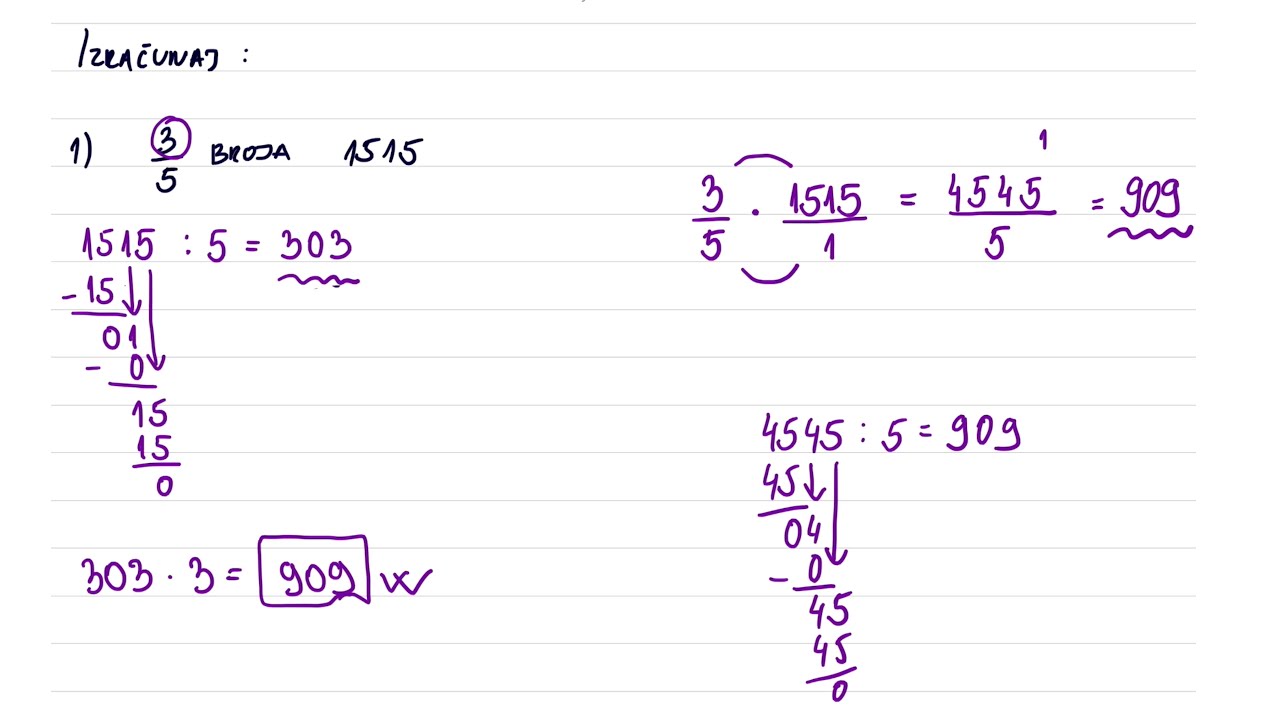 IZRAČUNAJ :
1) 3/5 BROJA 1515
1515 : 5 = 303
- 15
01
- 0
15
15
0
303 · 3 = 909
1
3/5 · 1515/1 = 4545/5 = 909
4545 : 5 = 909
45
04
- 0
45
45
0